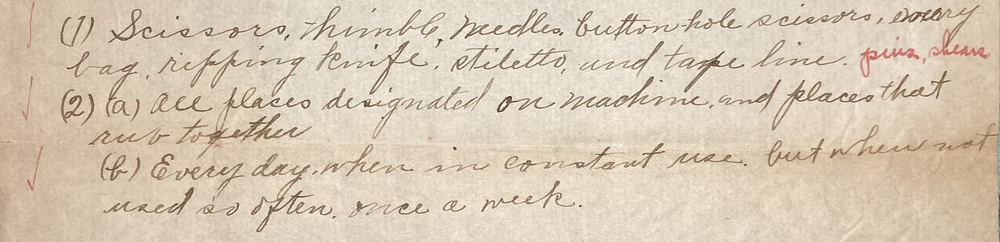 (1) Scissors, thimble, needles, button-hole scissors, emery
bag, ripping knife, stiletto, and tape line. pins, shears
(2) (a) All places designated on machine, and places that
rub together
(b) Every day, when in constant use. but when not
used so often, once a week.